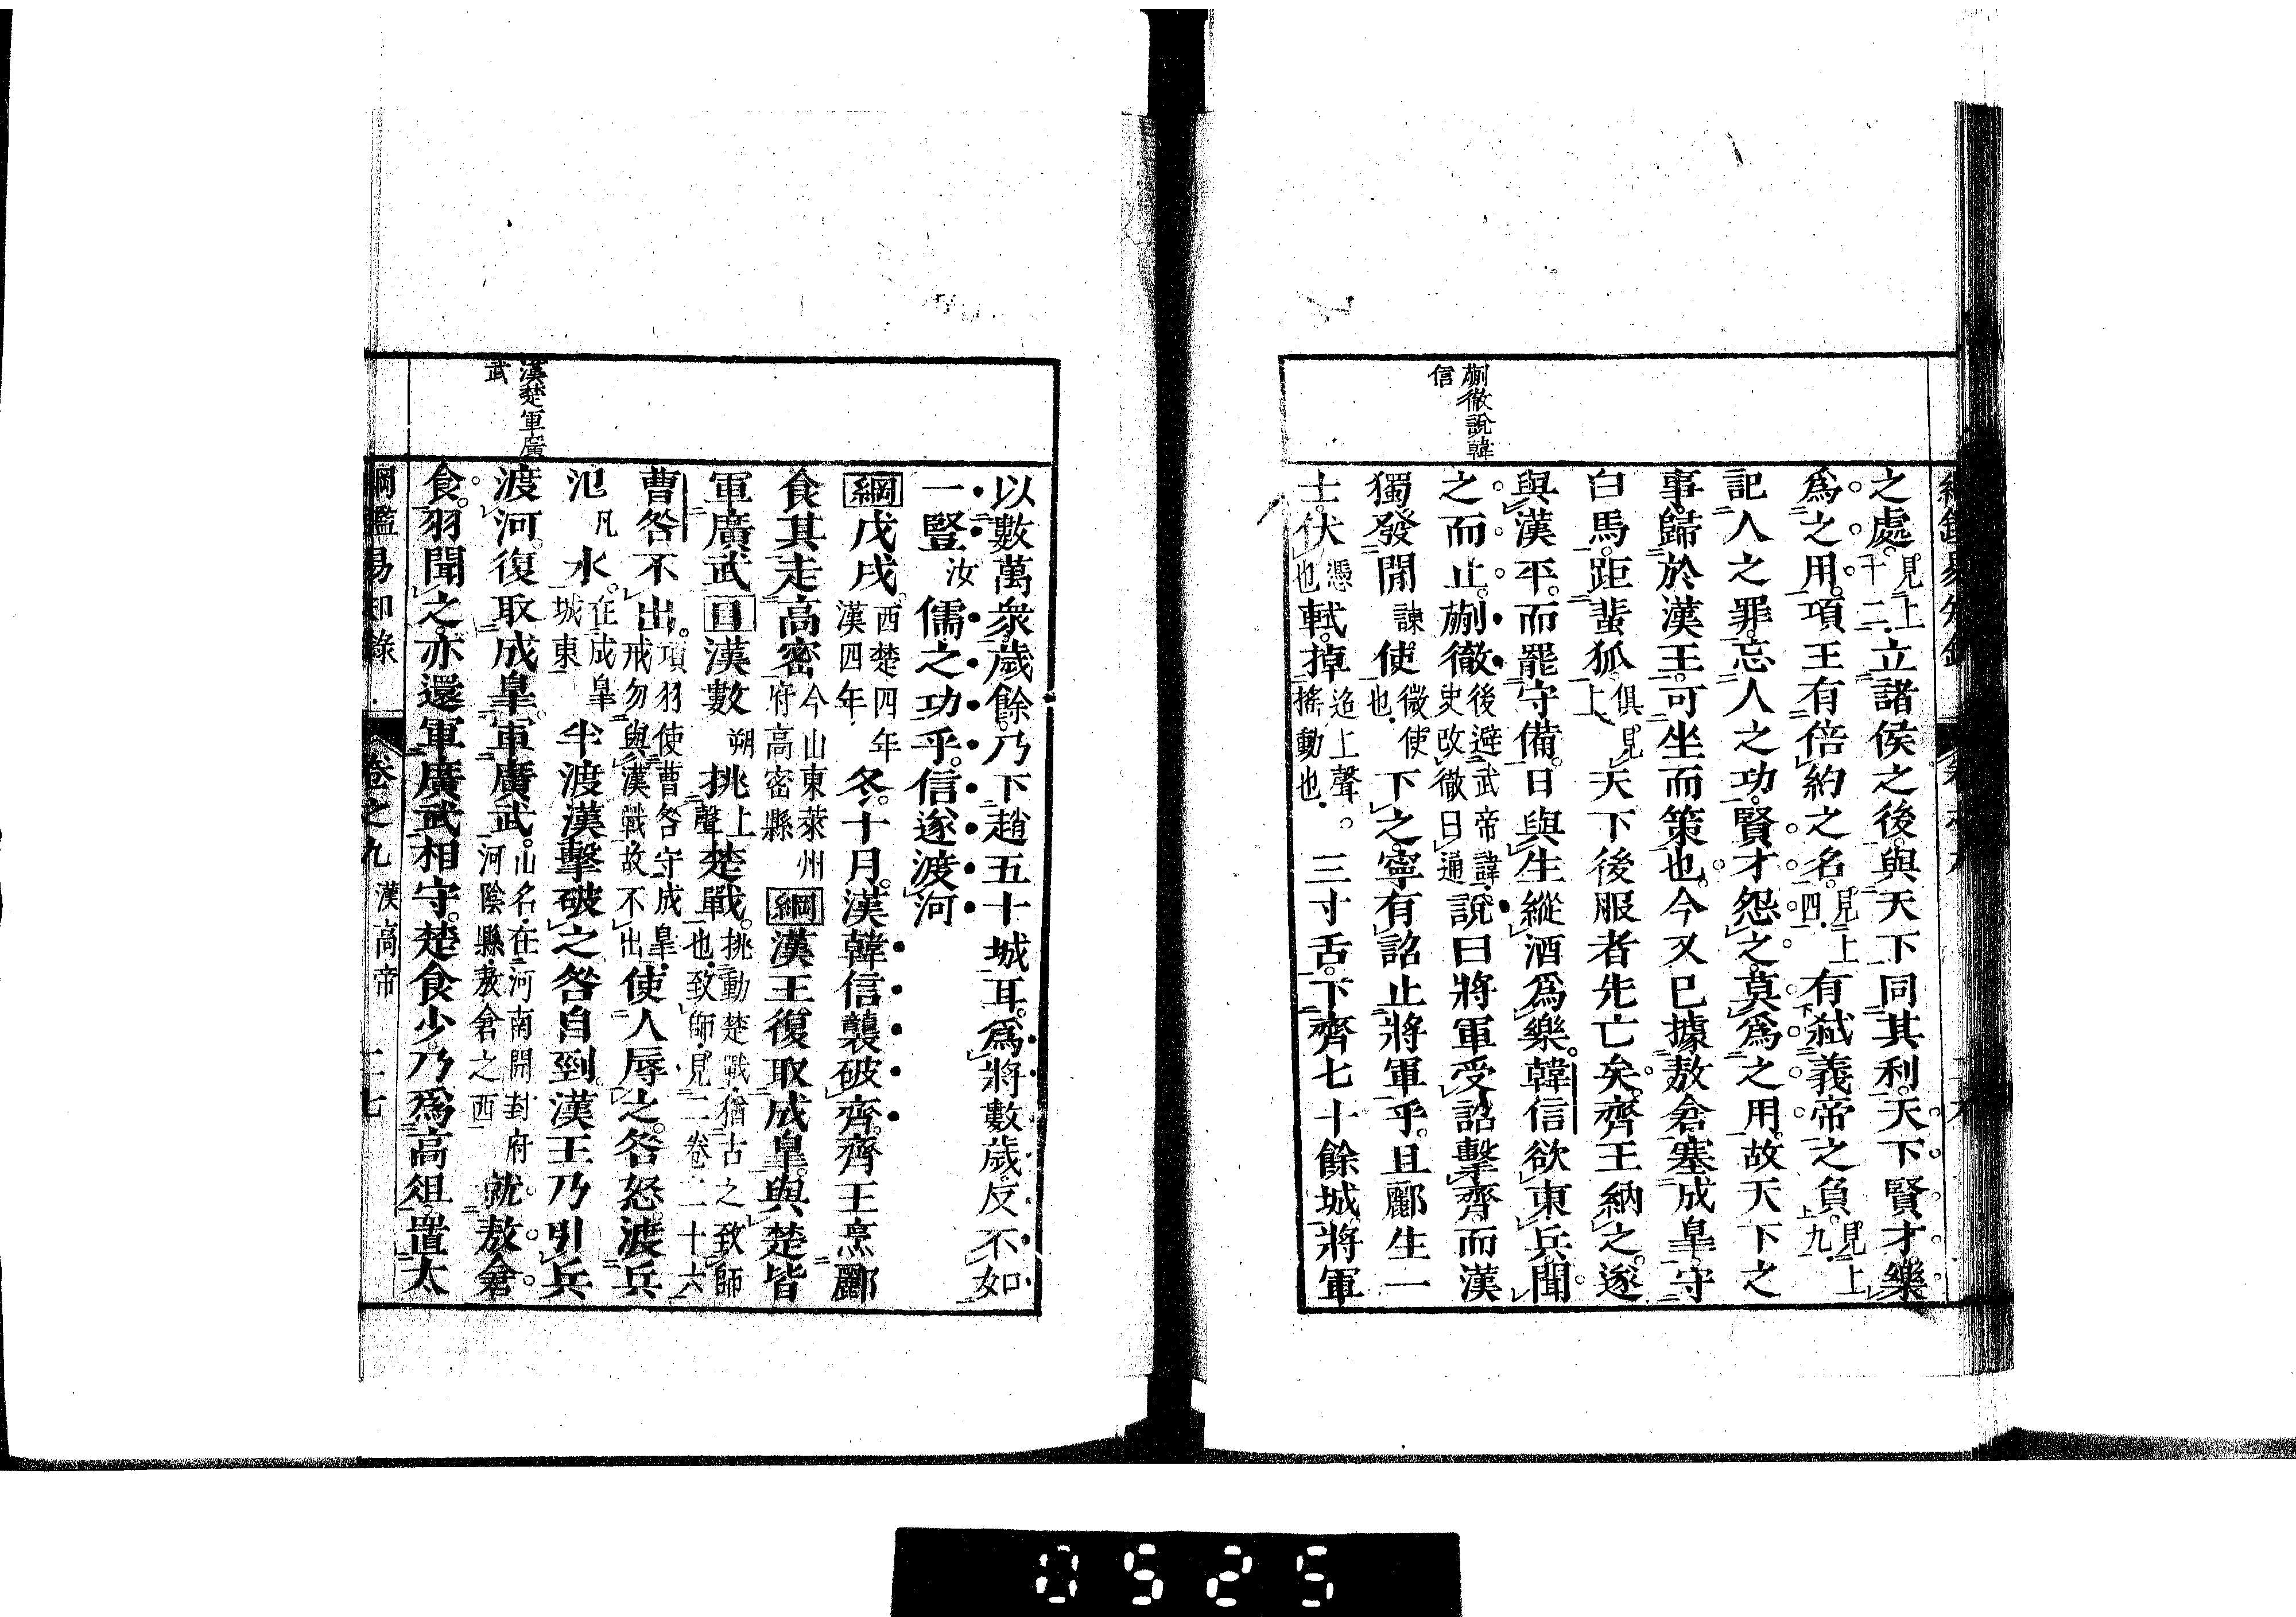 之處見上十二立諸侯之後與天下同其利天下賢才樂
爲之用項王有倍約之名見上四有弑義帝之負見上九
記人之罪忘人之功賢才怨之莫爲之用故天下之
事歸於漢王可坐而策也今又已據敖倉塞成皐守
白馬距蜚狐俱見上天下後服者先亡矣齊王納之遂
與漢平而罷守備日與生縱酒爲樂韓信欲東兵聞
蒯徹說韓信
之而止蒯徹後避武帝諱史改徹曰通說曰將軍受詔擊齊而漢
獨發閒諜使微使也下之寧有詔止將軍乎且酈生一
士伏憑也軾掉迢上聲搖動也三寸舌下齊七十餘城將軍
以數萬衆歲餘乃下趙五十城耳爲將數歲反不如
一豎汝儒之功乎信遂渡河
綱戊戌西楚四年漢四年冬十月漢韓信襲破齊齊王烹酈
食其走高密今山東萊州府高密縣綱漢王復取成皐與楚皆
軍廣武目漢數朔挑上聲楚戰挑動楚戰猶古之致師也致師見二卷二十六
曹咎不出項羽使曹咎守成皐戒勿與漢戰故不出使人辱之咎怒渡兵
氾凡水在成皐城東半渡漢擊破之咎自剄漢王乃引兵
漢楚軍廣武
渡河復取成皐軍廣武山名在河南開封府河陰縣敖倉之西就敖倉
食羽聞之亦還軍廣武相守楚食少乃爲高俎置太
綱鑑易知錄 卷之九 漢高帝 二七
0525